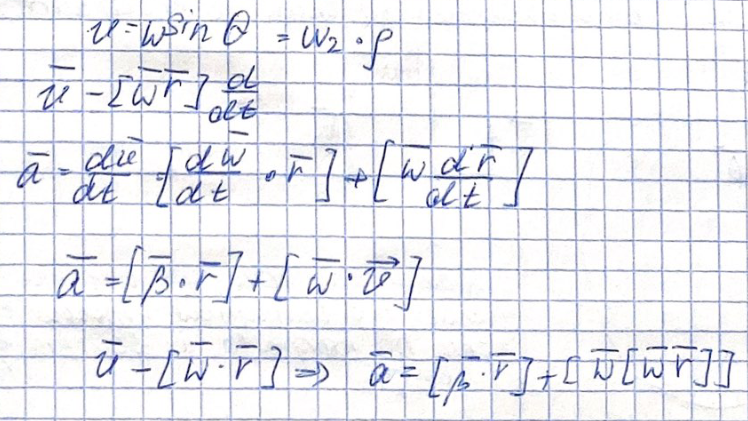 v = w sin θ = w₂ · ρ
v̄ - [w̄ r̄] d/dt
ā = dv̄/dt = [dw̄/dt · r̄] + [w̄ dr̄/dt]
ā = [β̄ · r̄] + [w̄ · v⃗]
v̄ - [w̄ · r̄] => ā = [β̄ · r̄] + [w̄ [w̄ r̄]]